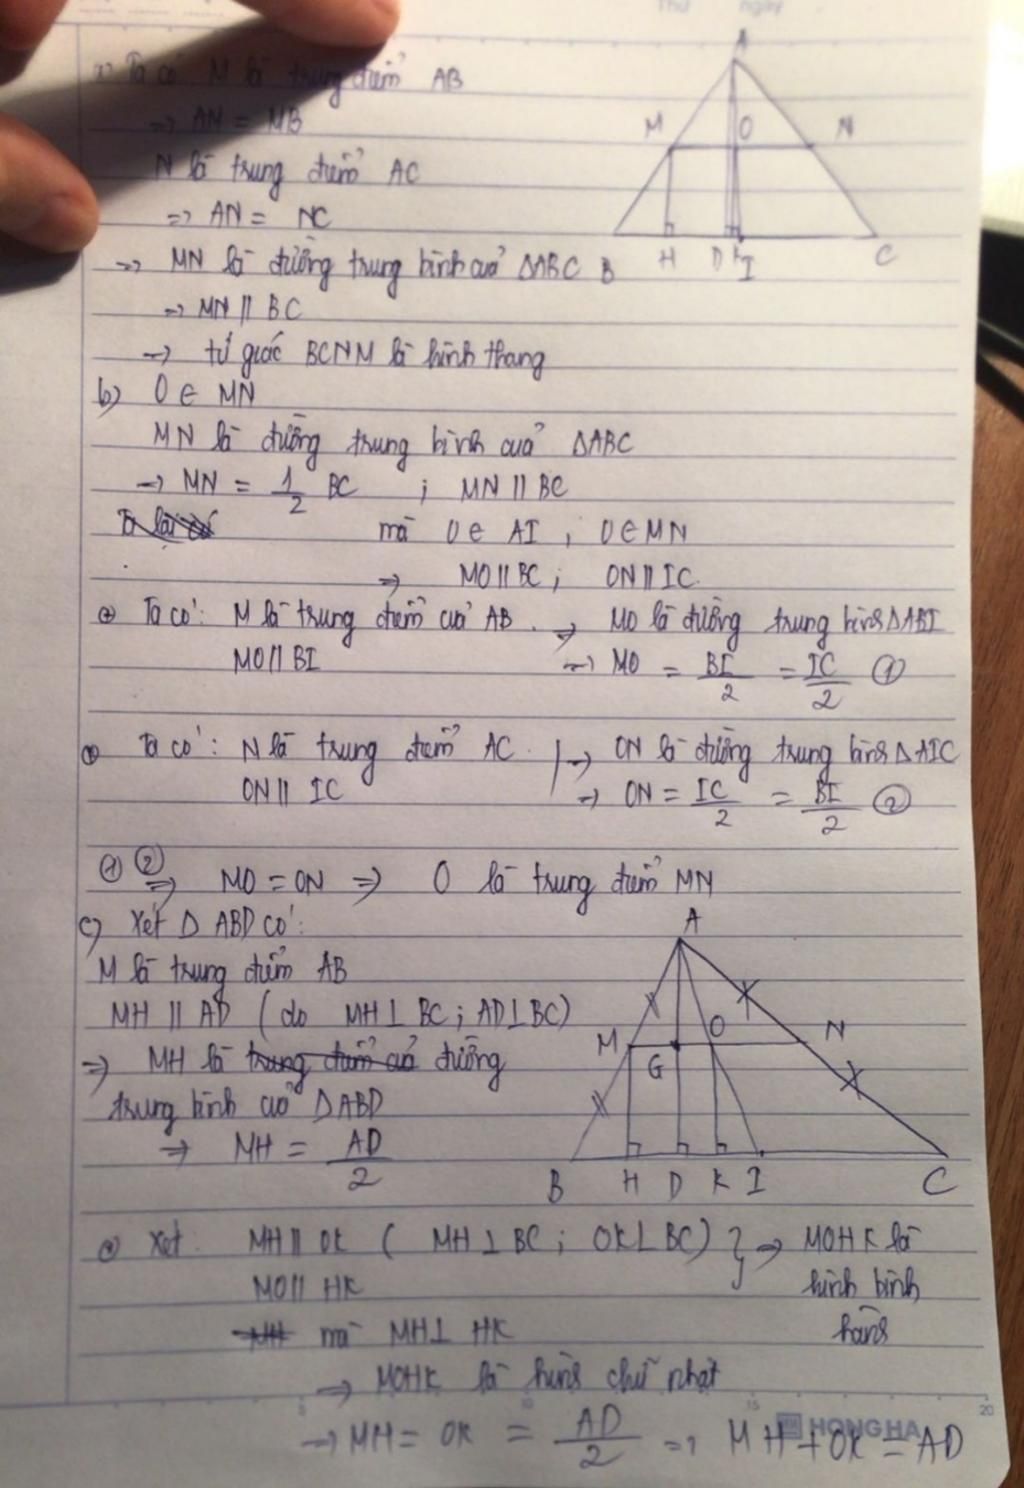 Thứ ngày
a) Ta có M là trung điểm AB
=> AN = MB
N là trung điểm AC
=> AN = NC
=> MN là đường trung bình của ΔABC
=> MN // BC
=> tứ giác BCNM là hình thang
A
M O N
B H D K I C
b) O ∈ MN
MN là đường trung bình của ΔABC
=> MN = 1/2 BC ; MN // BC
Ta lại có mà O ∈ AI ; O ∈ MN
=> MO // BC ; ON // IC
+ Ta có: M là trung điểm của AB => MO là đường trung bình ΔABI
MO // BI => MO = BI/2 = IC/2 (1)
+ Ta có: N là trung điểm AC => ON là đường trung bình ΔAIC
ON // IC => ON = IC/2 = BI/2 (2)
(1) (2) => MO = ON => O là trung điểm MN
c) Xét Δ ABD có:
M là trung điểm AB
MH // AD ( do MH ⊥ BC ; AD ⊥ BC)
=> MH là trung điểm của đường
trung bình của ΔABD
=> MH = AD/2
A
M G O N
B H D K I C
+ Xét MH // OK ( MH ⊥ BC ; OK ⊥ BC) } => MOHK là
MO // HK hình bình
MH mà MH ⊥ HK hành
=> MOHK là hình chữ nhật
5 10 15 20
HONG HA
=> MH = OK = AD/2 => MH + OK = AD